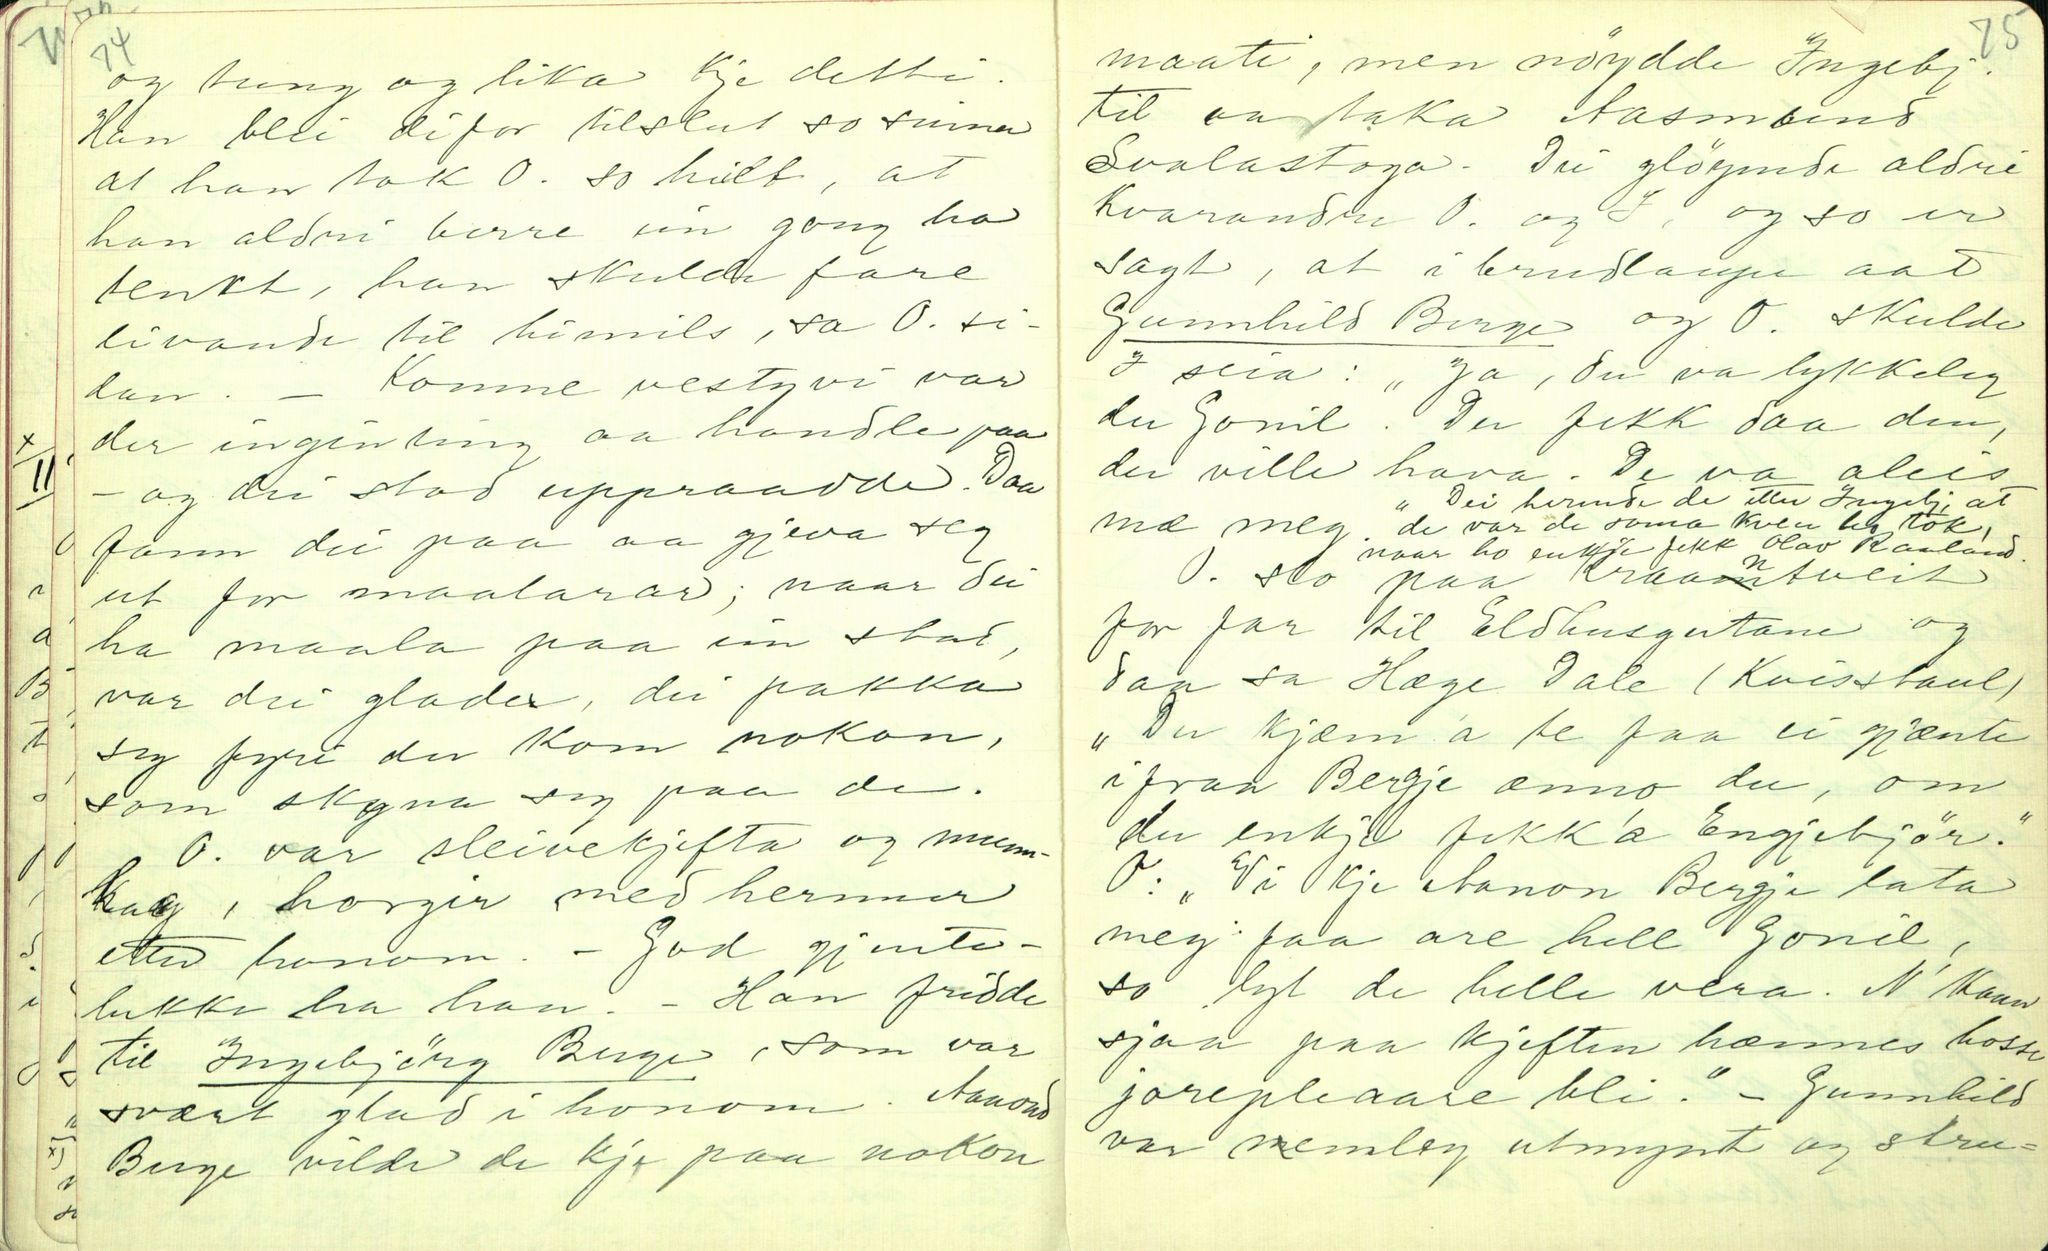 74
og tung og lika kje detti.
Han blei difor tilslut so sinna
at han tok O. so hilt, at
han aldri berre ein gong ha
tenkt, han skulde fare
livande til himils, sa O. si-
dan. – Komne vestyvi var
der ingenting aa handle paa
– og dei stod uppraadde. Daa
fann dei paa aa gjeva seg
ut for maalarar; naar dei
ha maala paa ein stad,
var dei glade, dei pakka
seg fyri der kom nokon,
som skyna seg paa de.
O. var sleivekjefta og munn-
kaag, horgjer med hermer
etter honom. – God gjente-
lukke ha han. – Han fridde
til Ingebjörg Berge, som var
svært glad i honom. Aanond
Berge vilde de kje paa nokon
75
maate, men nöydde Ingebj.
til aa taka Aasmund
Svalastoga. Dei glöymde aldri
kvarandre O. og I, og so er
sagt, at i brudlaupe aat
Gunnhild Berge og O. skulde
I seia: „Ja, du va lykkeleg
du Gonil. Du fekk daa den,
du ville hava. De va aleis
mæ meg. „Dei hermde de etter Ingebj. at
de var de sama kven ho tok,
naar ho enkje fekk Olav Rauland.
O. slo paa Kraantveit
for far til Eldhusgutane og
daa sa Hæge Dale (Kvisstaul)
„Du kjæm'a te faa ei gjænte
ifraa Bergje ænno du, om
du enkje fekk'a Engjebjör."
O: „Vi kje Aanon Bergje lata
meg faa are hell Gonil,
so lyt de helle vera. N' kann
sjaa paa kjeften hænnes hosse
jorepleaare bli." – Gunnhild
var nemleg utmynt og stru=